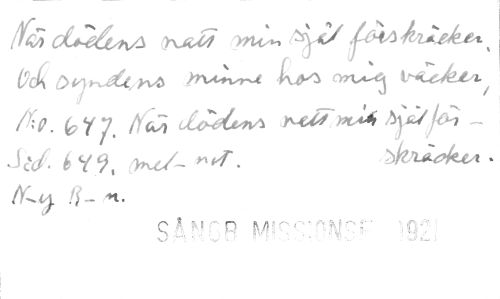 När dödens natt min själ förskräcker,
Och syndens minne hos mig väcker,
N:o. 647. När dödens natt min själ för-
Sid. 649. mel- not. skräcker.
N-y B-n.
SÅNGB MISSIONSF 1921